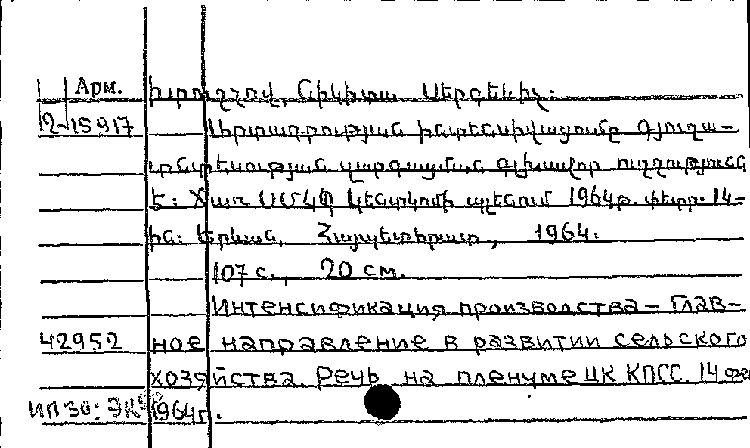 Арм. Խրուշչով, Նիկիտա Սերգեևիչ:
12-15917 Արտադրության ինտենսիվացումը գյուղա-
տնտեսության զարգացման գլխավոր ուղղությունն
է: Ճառ ՍՄԿԿ կենտկոմի պլենում 1964թ. փետր. 14-
ին: Երևան, Հայպետհրատ, 1964.
107 с., 20 см.
Интенсификация производства – глав-
42952 ное направление в развитии сельского
хозяйства. Речь на пленуме ЦК КПСС. 14 фев
1964г.